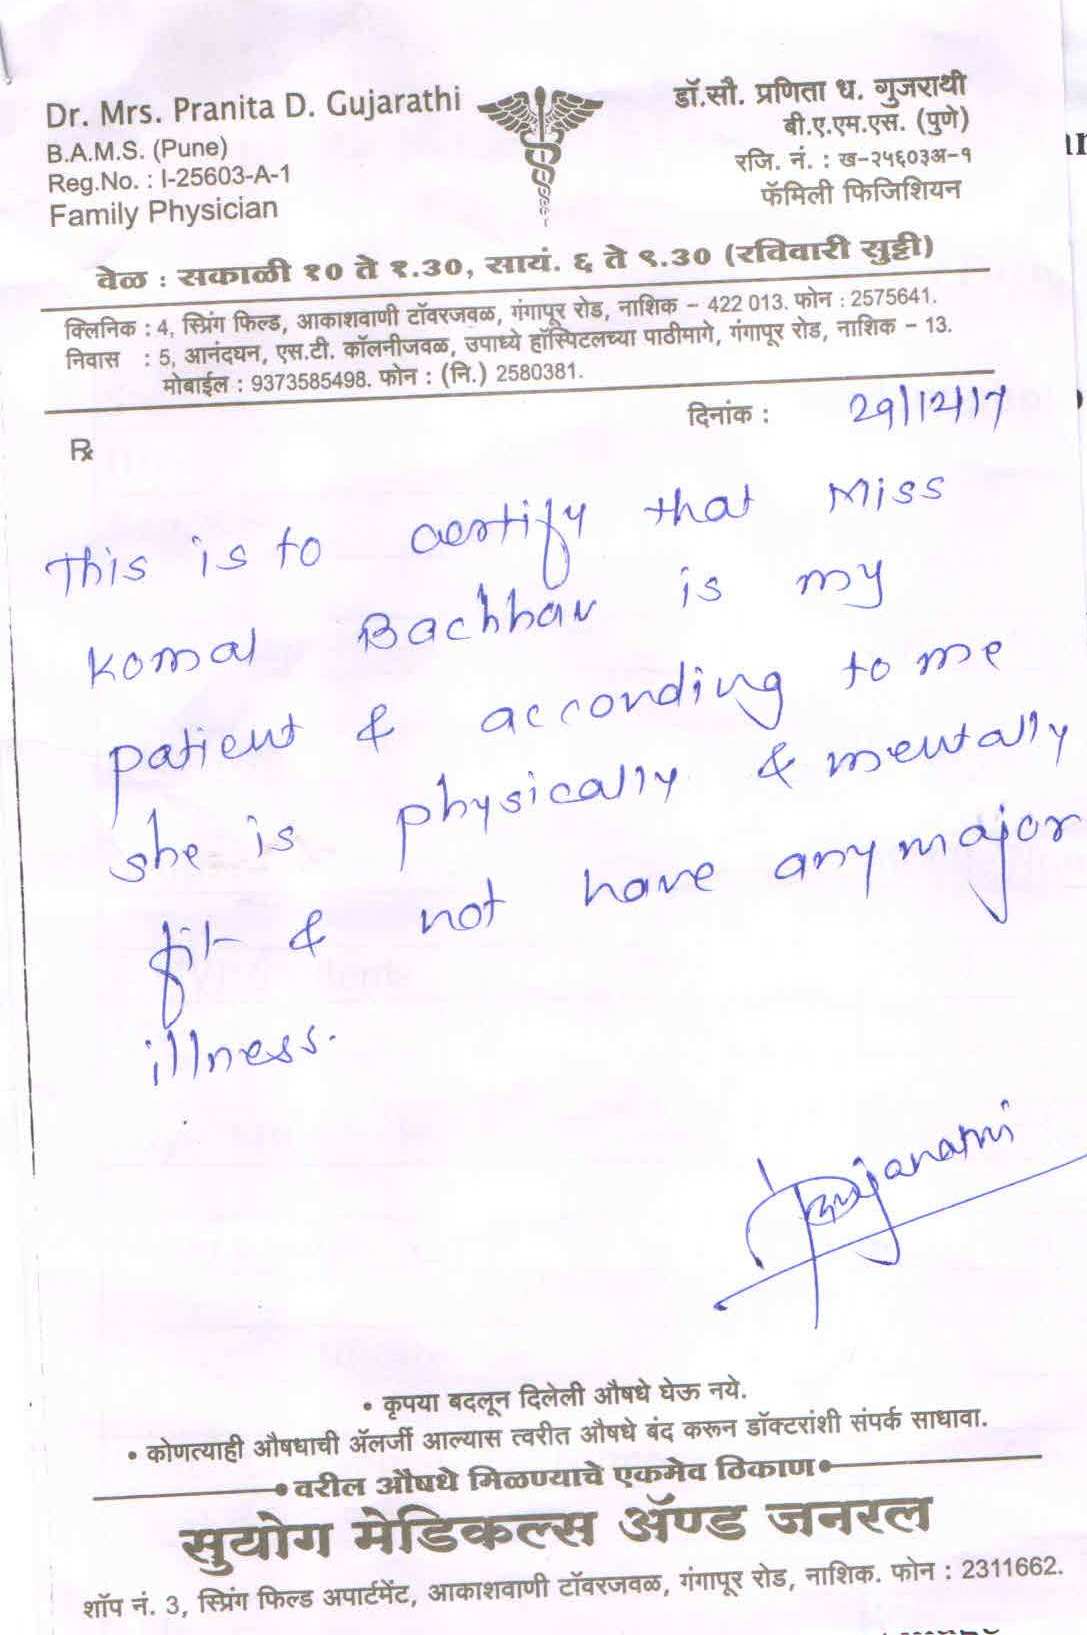 Dr. Mrs. Pranita D. Gujarathi
B.A.M.S. (Pune)
Reg.No. : I-25603-A-1
Family Physician
डॉ.सौ. प्रणिता ध. गुजराथी
बी.ए.एम.एस. (पुणे)
रजि. नं. : ख-२५६०३अ-१
फॅमिली फिजिशियन
वेळ : सकाळी १० ते १.३०, सायं. ६ ते ९.३० (रविवारी सुट्टी)
क्लिनिक : 4, स्प्रिंग फिल्ड, आकाशवाणी टॉवरजवळ, गंगापूर रोड, नाशिक - 422 013. फोन : 2575641.
निवास : 5, आनंदघन, एस.टी. कॉलनीजवळ, उपाध्ये हॉस्पिटलच्या पाठीमागे, गंगापूर रोड, नाशिक - 13.
मोबाईल : 9373585498. फोन : (नि.) 2580381.
दिनांक : 29/12/17
Rx
This is to certify that Miss
Komal Bachhav is my
patient & according to me
she is physically & mentally
fit & not have any major
illness.
Gujarathi
• कृपया बदलून दिलेली औषधे घेऊ नये.
• कोणत्याही औषधाची ॲलर्जी आल्यास त्वरीत औषधे बंद करून डॉक्टरांशी संपर्क साधावा.
• वरील औषधे मिळण्याचे एकमेव ठिकाण •
सुयोग मेडिकल्स ॲण्ड जनरल
शॉप नं. 3, स्प्रिंग फिल्ड अपार्टमेंट, आकाशवाणी टॉवरजवळ, गंगापूर रोड, नाशिक. फोन : 2311662.